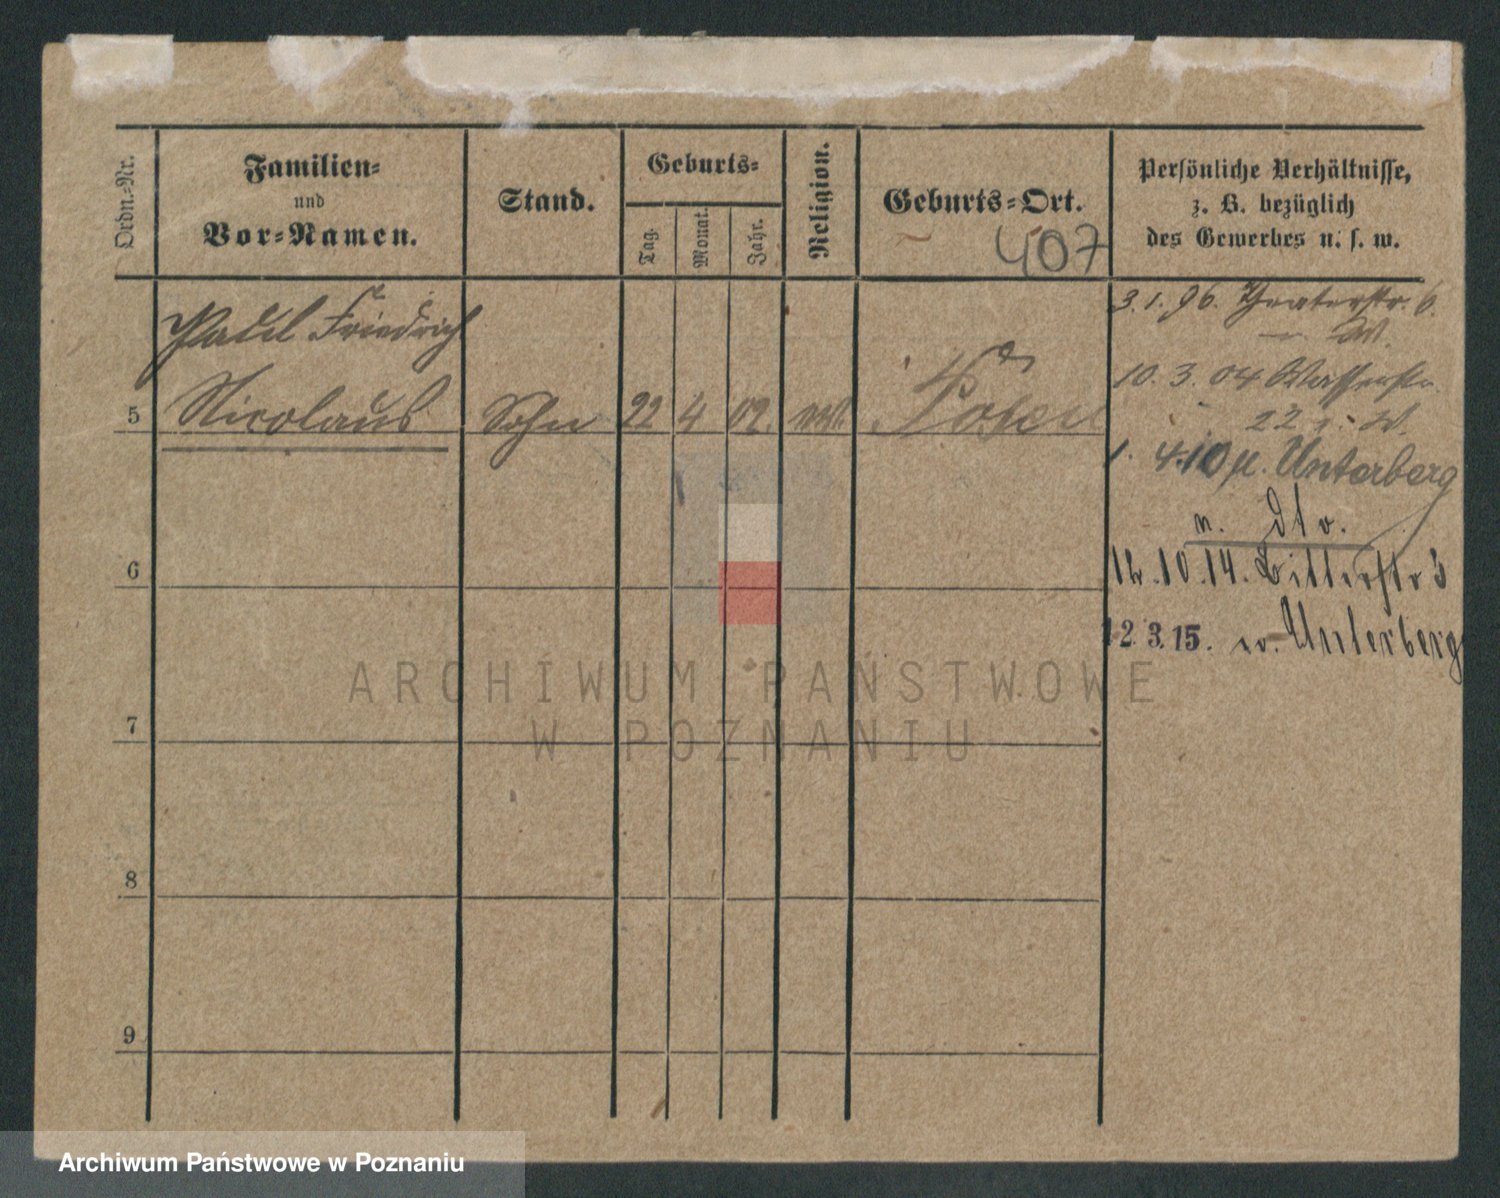 Ordn.-Nr.
Familien-
und
Vor-Namen.
Stand.
Geburts-
Tag.
Monat.
Jahr.
Religion.
Geburts-Ort.
407
Persönliche Verhältnisse,
z. B. bezüglich
des Gewerbes u. s. w.
Paul Friedrich
5 Nicolaus Sohn 22 4 02. Posen
3.1.96. Theaterstr. 6.
W.
10. 3. 04 Wasserstr.
22 W.
1. 4.10 Unterberg
n. dto.
12.10.14. Bitterstr 3
12.3.15. w. Unterberg
6
7
8
9
ARCHIWUM PAŃSTWOWE
W POZNANIU
Archiwum Państwowe w Poznaniu